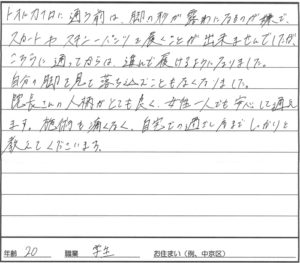 トオルカイロに通う前は、脚の形が露わになるのが嫌で、
スカートやスキニーパンツを履くことが出来ませんでしたが
こちらに通ってからは、進んで履けるようになりました。
自分の脚を見て落ち込むこともなくなりました。
院長さんの人柄がとても良く、女性一人でも安心して通え
ます。施術も痛くなく、自宅での過ごし方まで しっかりと
教えてくださいます。
年齢 20 職業 学生 お住まい(例、中京区)